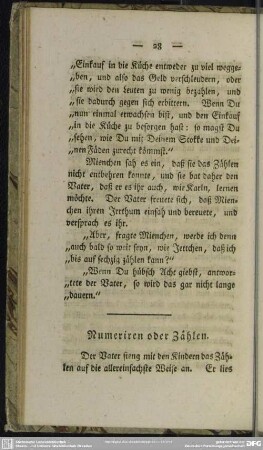 — 28 —
„Einkauf in die Küche entweder zu viel wegge-
„ben, und also das Geld verschleudern, oder
„sie wird den Leuten zu wenig bezahlen, und
„sie dadurch gegen sich erbittern. Wenn Du
„nun einmal erwachsen bist, und den Einkauf
„in die Küche zu besorgen hast: so magst Du
„sehen, wie Du mit Deinem Stokke und Dei-
„nen Fäden zurecht kömmst.“
Mienchen sah es ein, daß sie das Zählen
nicht entbehren konnte, und sie bat daher den
Vater, daß er es ihr auch, wie Karln, lernen
möchte. Der Vater freuete sich, daß Mien-
chen ihren Irrthum einsah und bereuete, und
versprach es ihr.
„Aber, fragte Mienchen, werde ich denn
„auch bald so weit seyn, wie Jettchen, daß ich
„bis auf sechzig zählen kann?“
„Wenn Du hübsch Acht giebst, antwor-
„tete der Vater, so wird das gar nicht lange
„dauern.“
Numeriren oder Zählen.
Der Vater fieng mit den Kindern das Zäh-
len auf die allereinfachste Weise an. Er lies